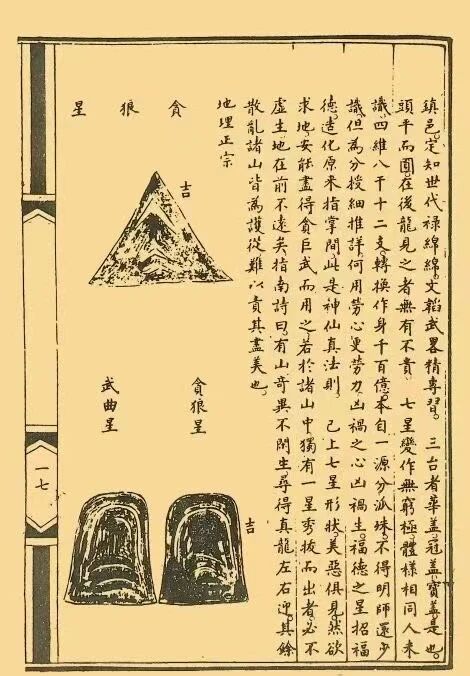 鎮邑。定知世代祿綿綿。文韜武畧精專習。三台者華盖冠盖寶盖是也。
頭平而圓在後龍見之者無有不貴。七星變作無窮極。體樣相同人未
識。四維八干十二支。轉換作身千百億。本自一源分派殊。不得明師還少
識。但為分授細推詳。何用勞心更勞力。凶禍之心凶禍生。福德之星招福
德。造化原來指掌間。此是神仙真法則。已上七星形狀美惡俱見。然欲
求地安能盡得貪巨武而用之。若於諸山中獨有一星秀拔而出者。必不
虛生地在前不遠矣。指南詩曰。有山奇異不閑生。尋得真龍左右迎。其餘
散亂諸山皆為護從。難以責其盡美也。
地理正宗
貪狼星
吉
貪狼星
武曲星
吉
一七